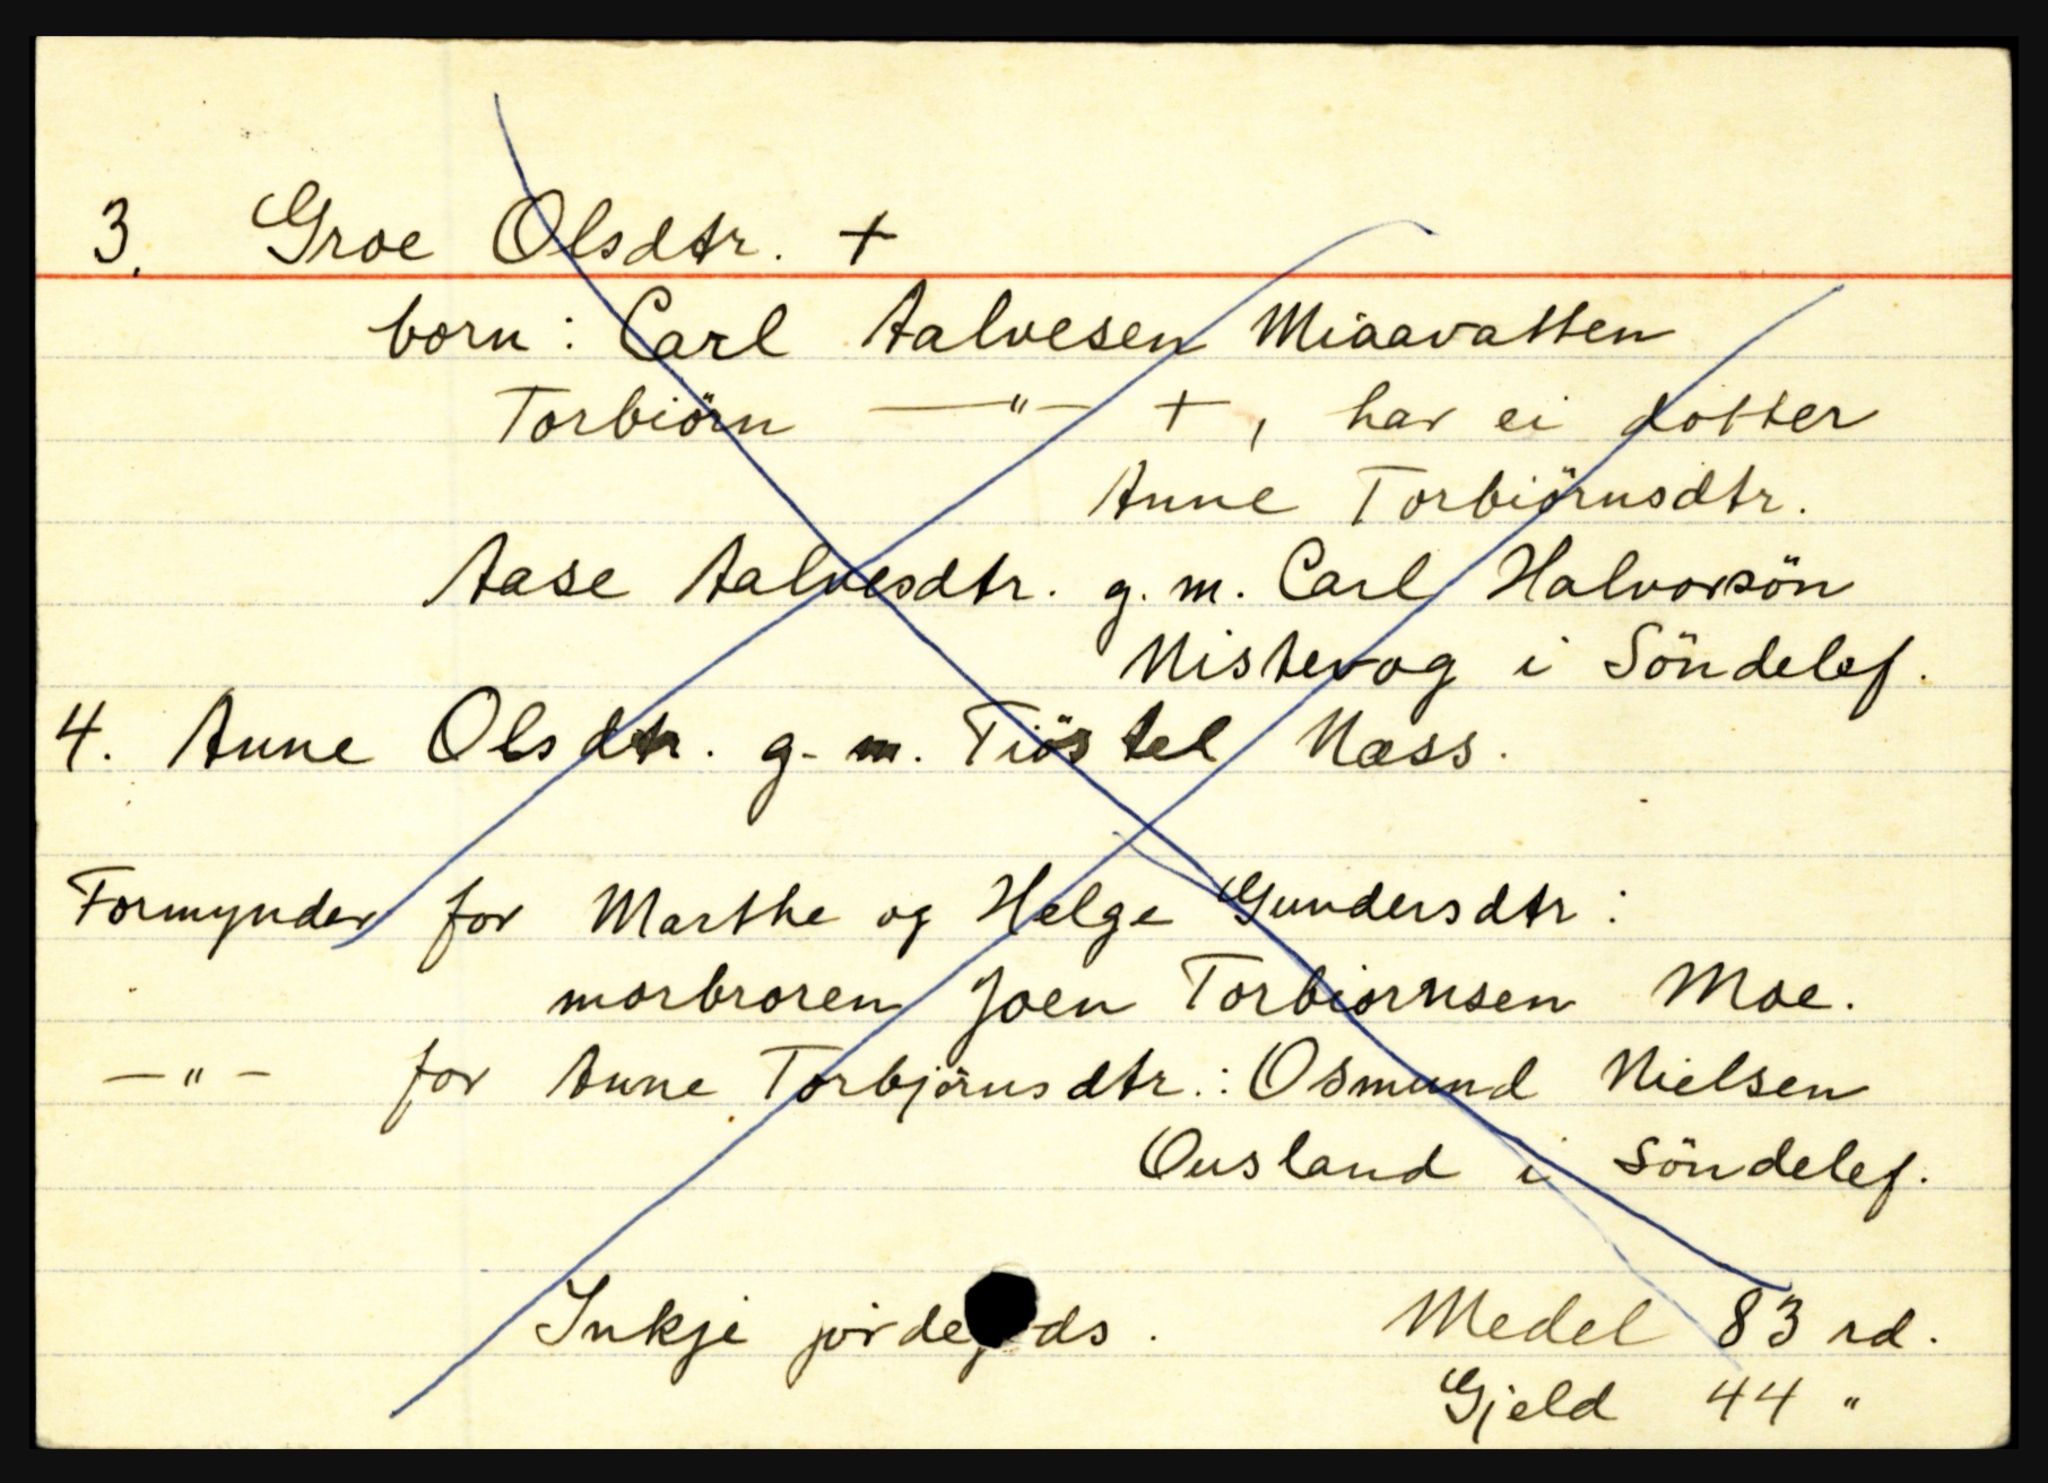 3. Groe Olsdtr. +
born : Carl Aalvesen Miaavatten
Torbiörn —"— +, har ei dotter
Anne Torbiörnsdtr.
Aase Aalvesdtr. g. m. Carl Halvorsön
Nistevog i Söndelef.
4. Anne Olsdtr. g. m. Tiöstel Næss.
Formynder for Marthe og Helge Gundersdtr :
morbroren Joen Torbiornsen Moe.
—"— for Anne Torbjörnsdtr. : Osmund Nielsen
Ousland i Söndelef.
Inkje jordegods. Medel 83 rd.
Gjeld 44 "